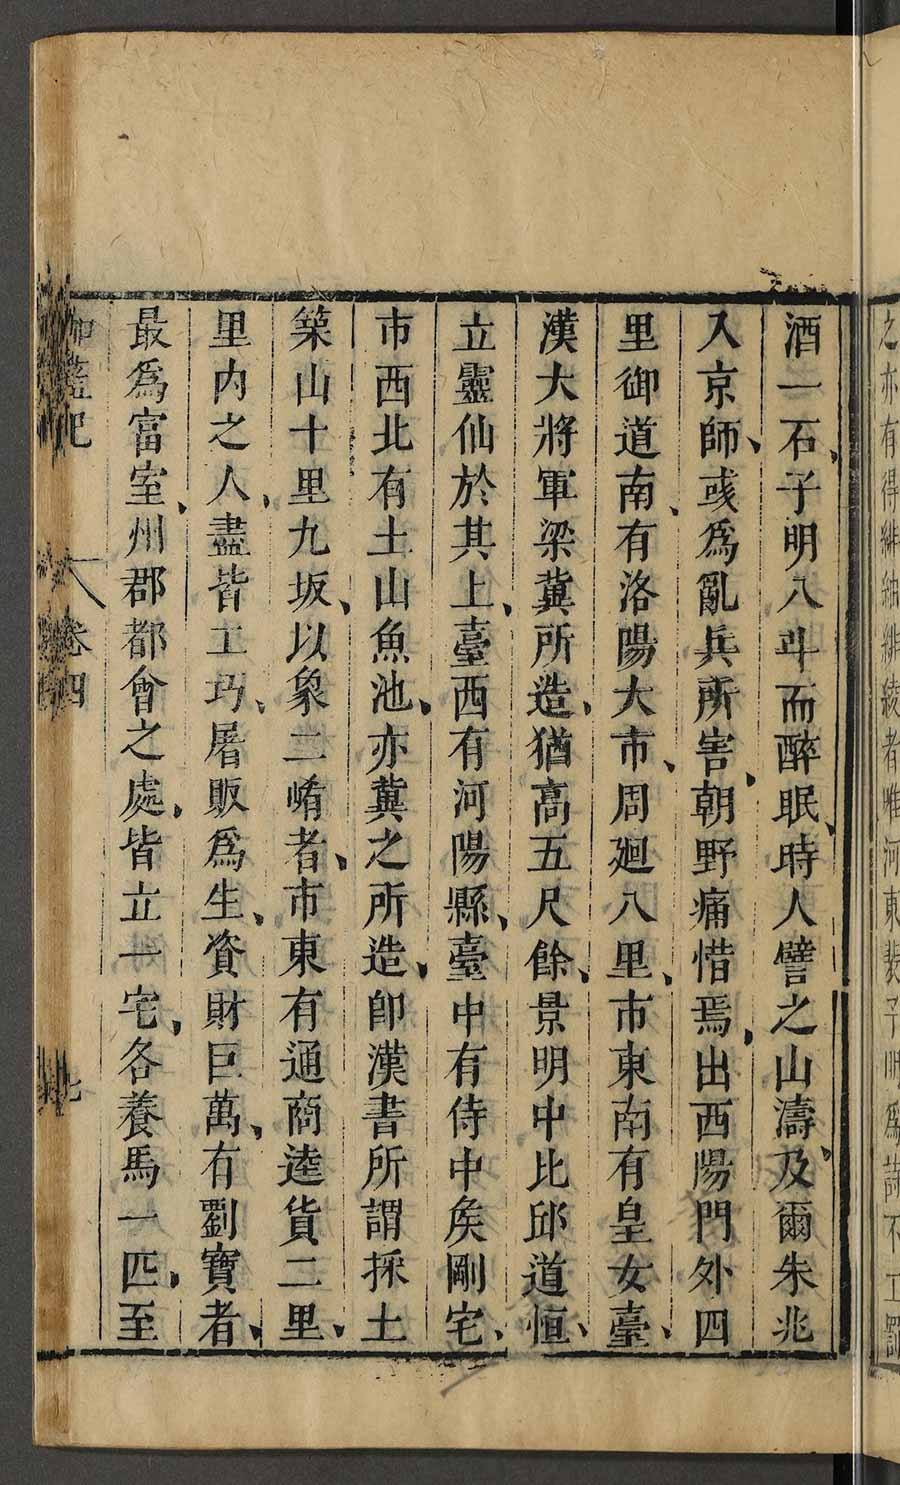 之亦有得緋紬緋綾者唯河東裴子明爲詩不工罰
酒一石、子明八斗而醉眠、時人譬之山濤、及爾朱兆
入京師、彧爲亂兵所害、朝野痛惜焉、出西陽門外四
里御道南、有洛陽大市、周廻八里、市東南有皇女臺、
漢大將軍梁冀所造、猶高五尺餘、景明中比邱道恒、
立靈仙於其上、臺西有河陽縣、臺中有侍中矦剛宅、
市西北有土山魚池、亦冀之所造、卽漢書所謂採土
築山十里九坂、以象二崤者、市東有通商逵貨二里、
里內之人、盡皆工巧、屠販爲生、資財巨萬、有劉寶者、
最爲富室、州郡都會之處、皆立一宅、各養馬一匹、至
伽藍記 卷四 七